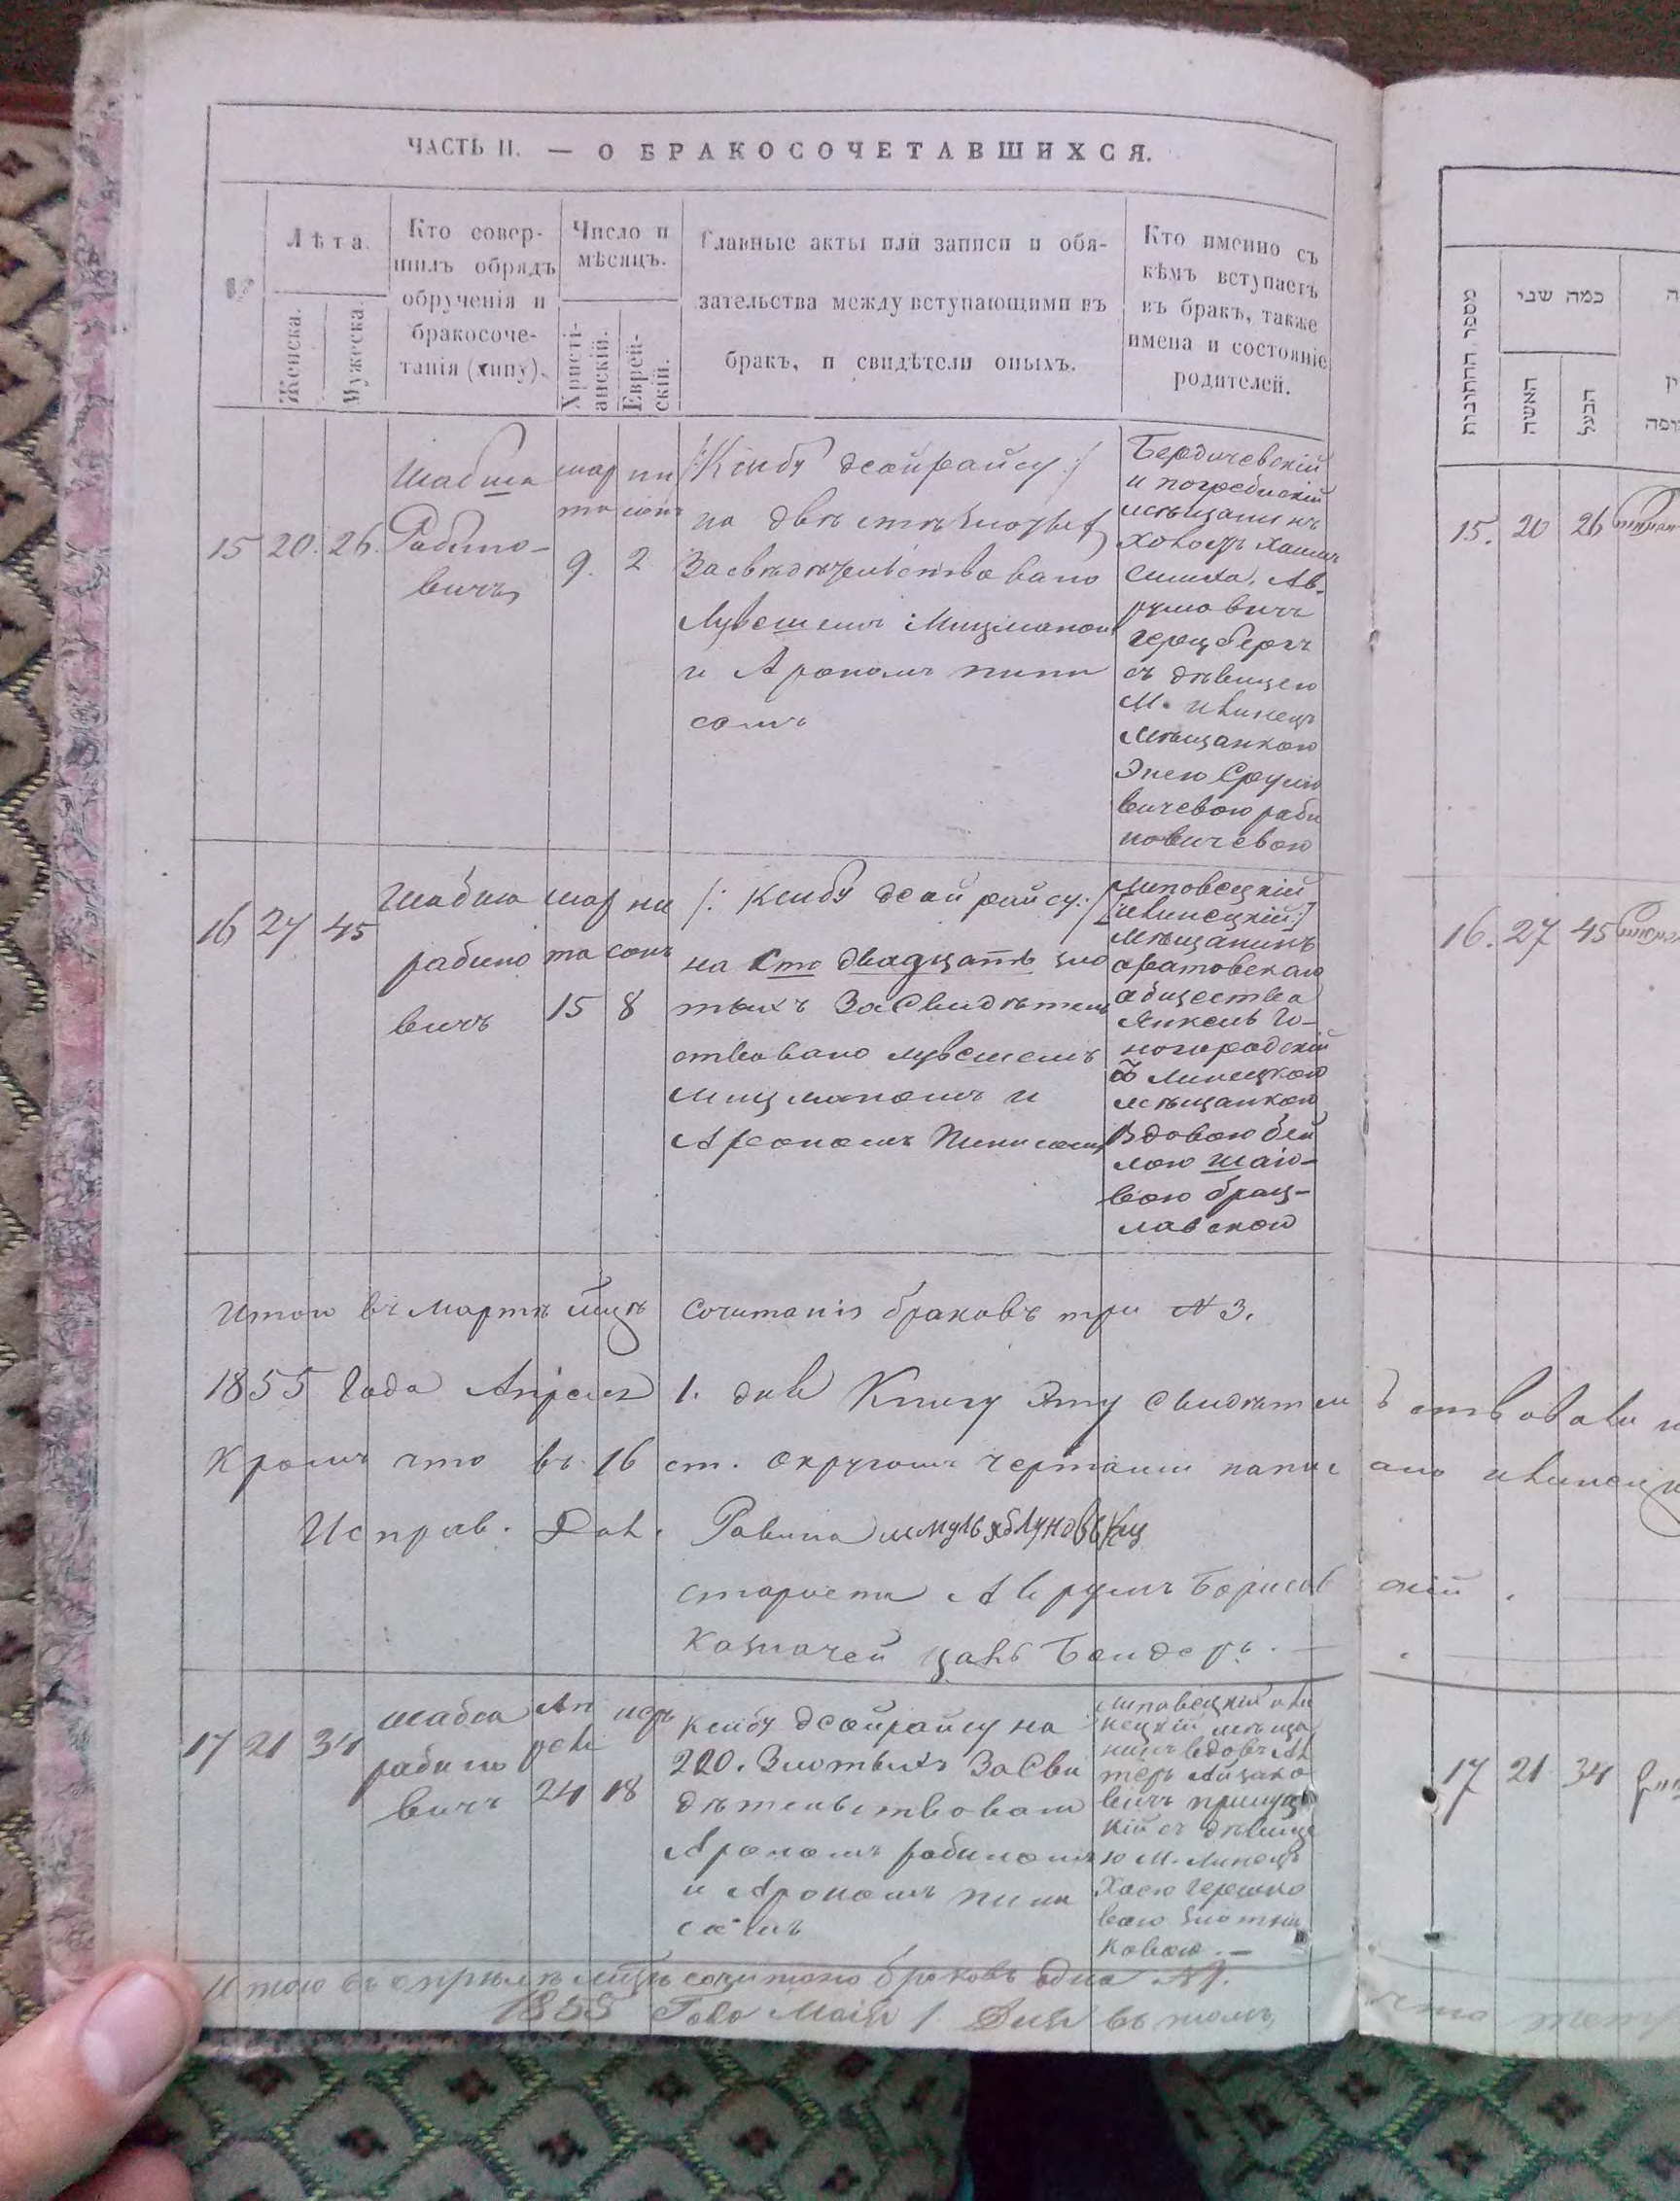 ЧАСТЬ II. — О БРАКОСОЧЕТАВШИХСЯ.
№
Лѣта.
Женска.
Мужеска.
Кто совер-
шилъ обрядъ
обрученія и
бракосоче-
танія (хипу).
Число и
мѣсяцъ.
Христі-
анскій.
Еврей-
скій.
Главные акты или записи и обя-
зательства между вступающими въ
бракъ, и свидѣтели оныхъ.
Кто именно съ
кѣмъ вступаетъ
въ бракъ, также
имена и состояніе
родителей.
15 20. 26.
Шабша
Рабино-
вичъ
мар
та
9.
ни
сонъ
2
/:Ксибу дсойрайсу:/
на двѣстѣ злотых
Засвѣдѣтельствовано
Мицманомъ
и Арономъ пинк
сомъ
Бердичевскій
и погребискій
мѣщанинъ
холостъ хаимъ
Симха, Ав-
румовичъ
герцбергъ
съ дѣвицею
М. илинецъ
мѣщанкою
Энею Срулио
вичевою раби
новичевою
16 27 45
Шабша
рабино
вичъ
мар
та
15
ни
сонъ
8
/: Ксибу дсойрайсу:/
на сто двадцать зло
тыхъ Засвидѣтель
ствовано
Мицманомъ и
Арономъ Пинксомъ
Липовецкій
[илинецкій:]
Мѣщанинъ
общества
Янкель Го-
ногородскій
Съ Линецкою
мѣщанкою
Вдовою бей
лою шаio-
вою брац-
лавскою
Итого въ Мартѣ мцѣ сочитанiя браковъ три № 3.
1855 Года Апреля 1. дня Книгу Эту Свидѣтельствовали и
Кромѣ что въ 16 ст. округомъ чертами написано илинецк
Исправ. Дол. Равина шмуль яблуновскиц
староста Аврумъ Борисовскій.
Казначей Бендеръ.
17 21 34
шабша
рабино
вичъ
Ап
рель
24
иеръ
18
Ксибу дсойрайсу на
220. Злотыхъ ЗаСви
дѣтельствовано
Арономъ рабиномъ
и Арономъ пинк
сомъ
липовецкій или
нецкій мѣща
нинъ вдовъ Аль
теръ Айзико
вичъ
кій съ дѣвице
ю М. Линецъ
Хаею Гершко
вою
ковою. —
Итого въ апрѣлѣ мцѣ сочитано браковъ одна № 1.
1855 Года Маiя 1 Дня въ томъ, что
מספר החתונות
כמה שני
האשה
הבעל
15. 20 26
16. 27 45
17 21 34